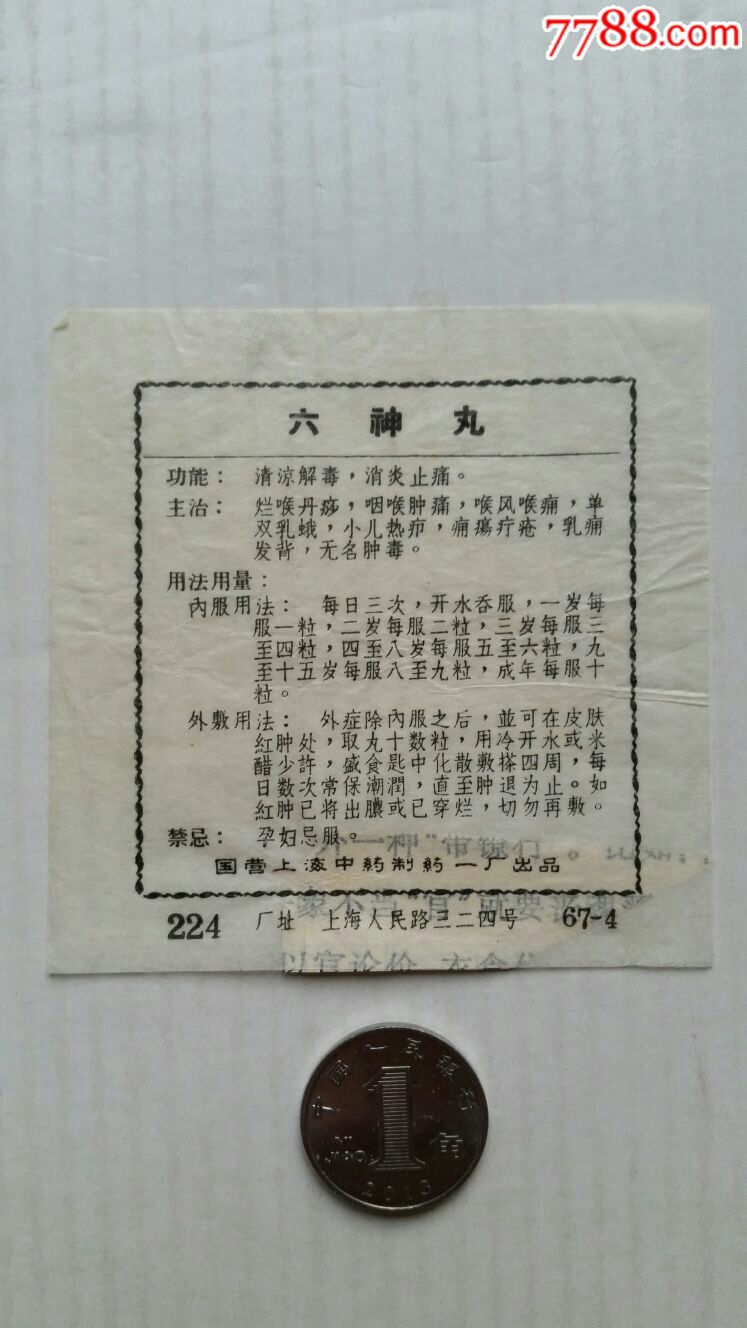 7788.com
六神丸
功能： 清涼解毒，消炎止痛。
主治： 烂喉丹痧，咽喉肿痛，喉风喉痈，单
双乳蛾，小儿热疖，痈瘍疔疮，乳痈
发背，无名肿毒。
用法用量：
內服用法： 每日三次，开水吞服，一岁每
服一粒，二岁每服二粒，三岁每服三
至四粒，四至八岁每服五至六粒，九
至十五岁每服八至九粒，成年每服十
粒。
外敷用法： 外症除內服之后，並可在皮肤
紅肿处，取丸十数粒，用冷开水或米
醋少許，盛食匙中化散敷搽四周，每
日数次常保潮潤，直至肿退为止。如
紅肿已将出膿或已穿烂，切勿再敷。
禁忌： 孕妇忌服。
国营上海中药制药一厂出品
224 厂址 上海人民路三二四号 67-4
以官论价
中国人民银行
1角
YI JIAO
2013